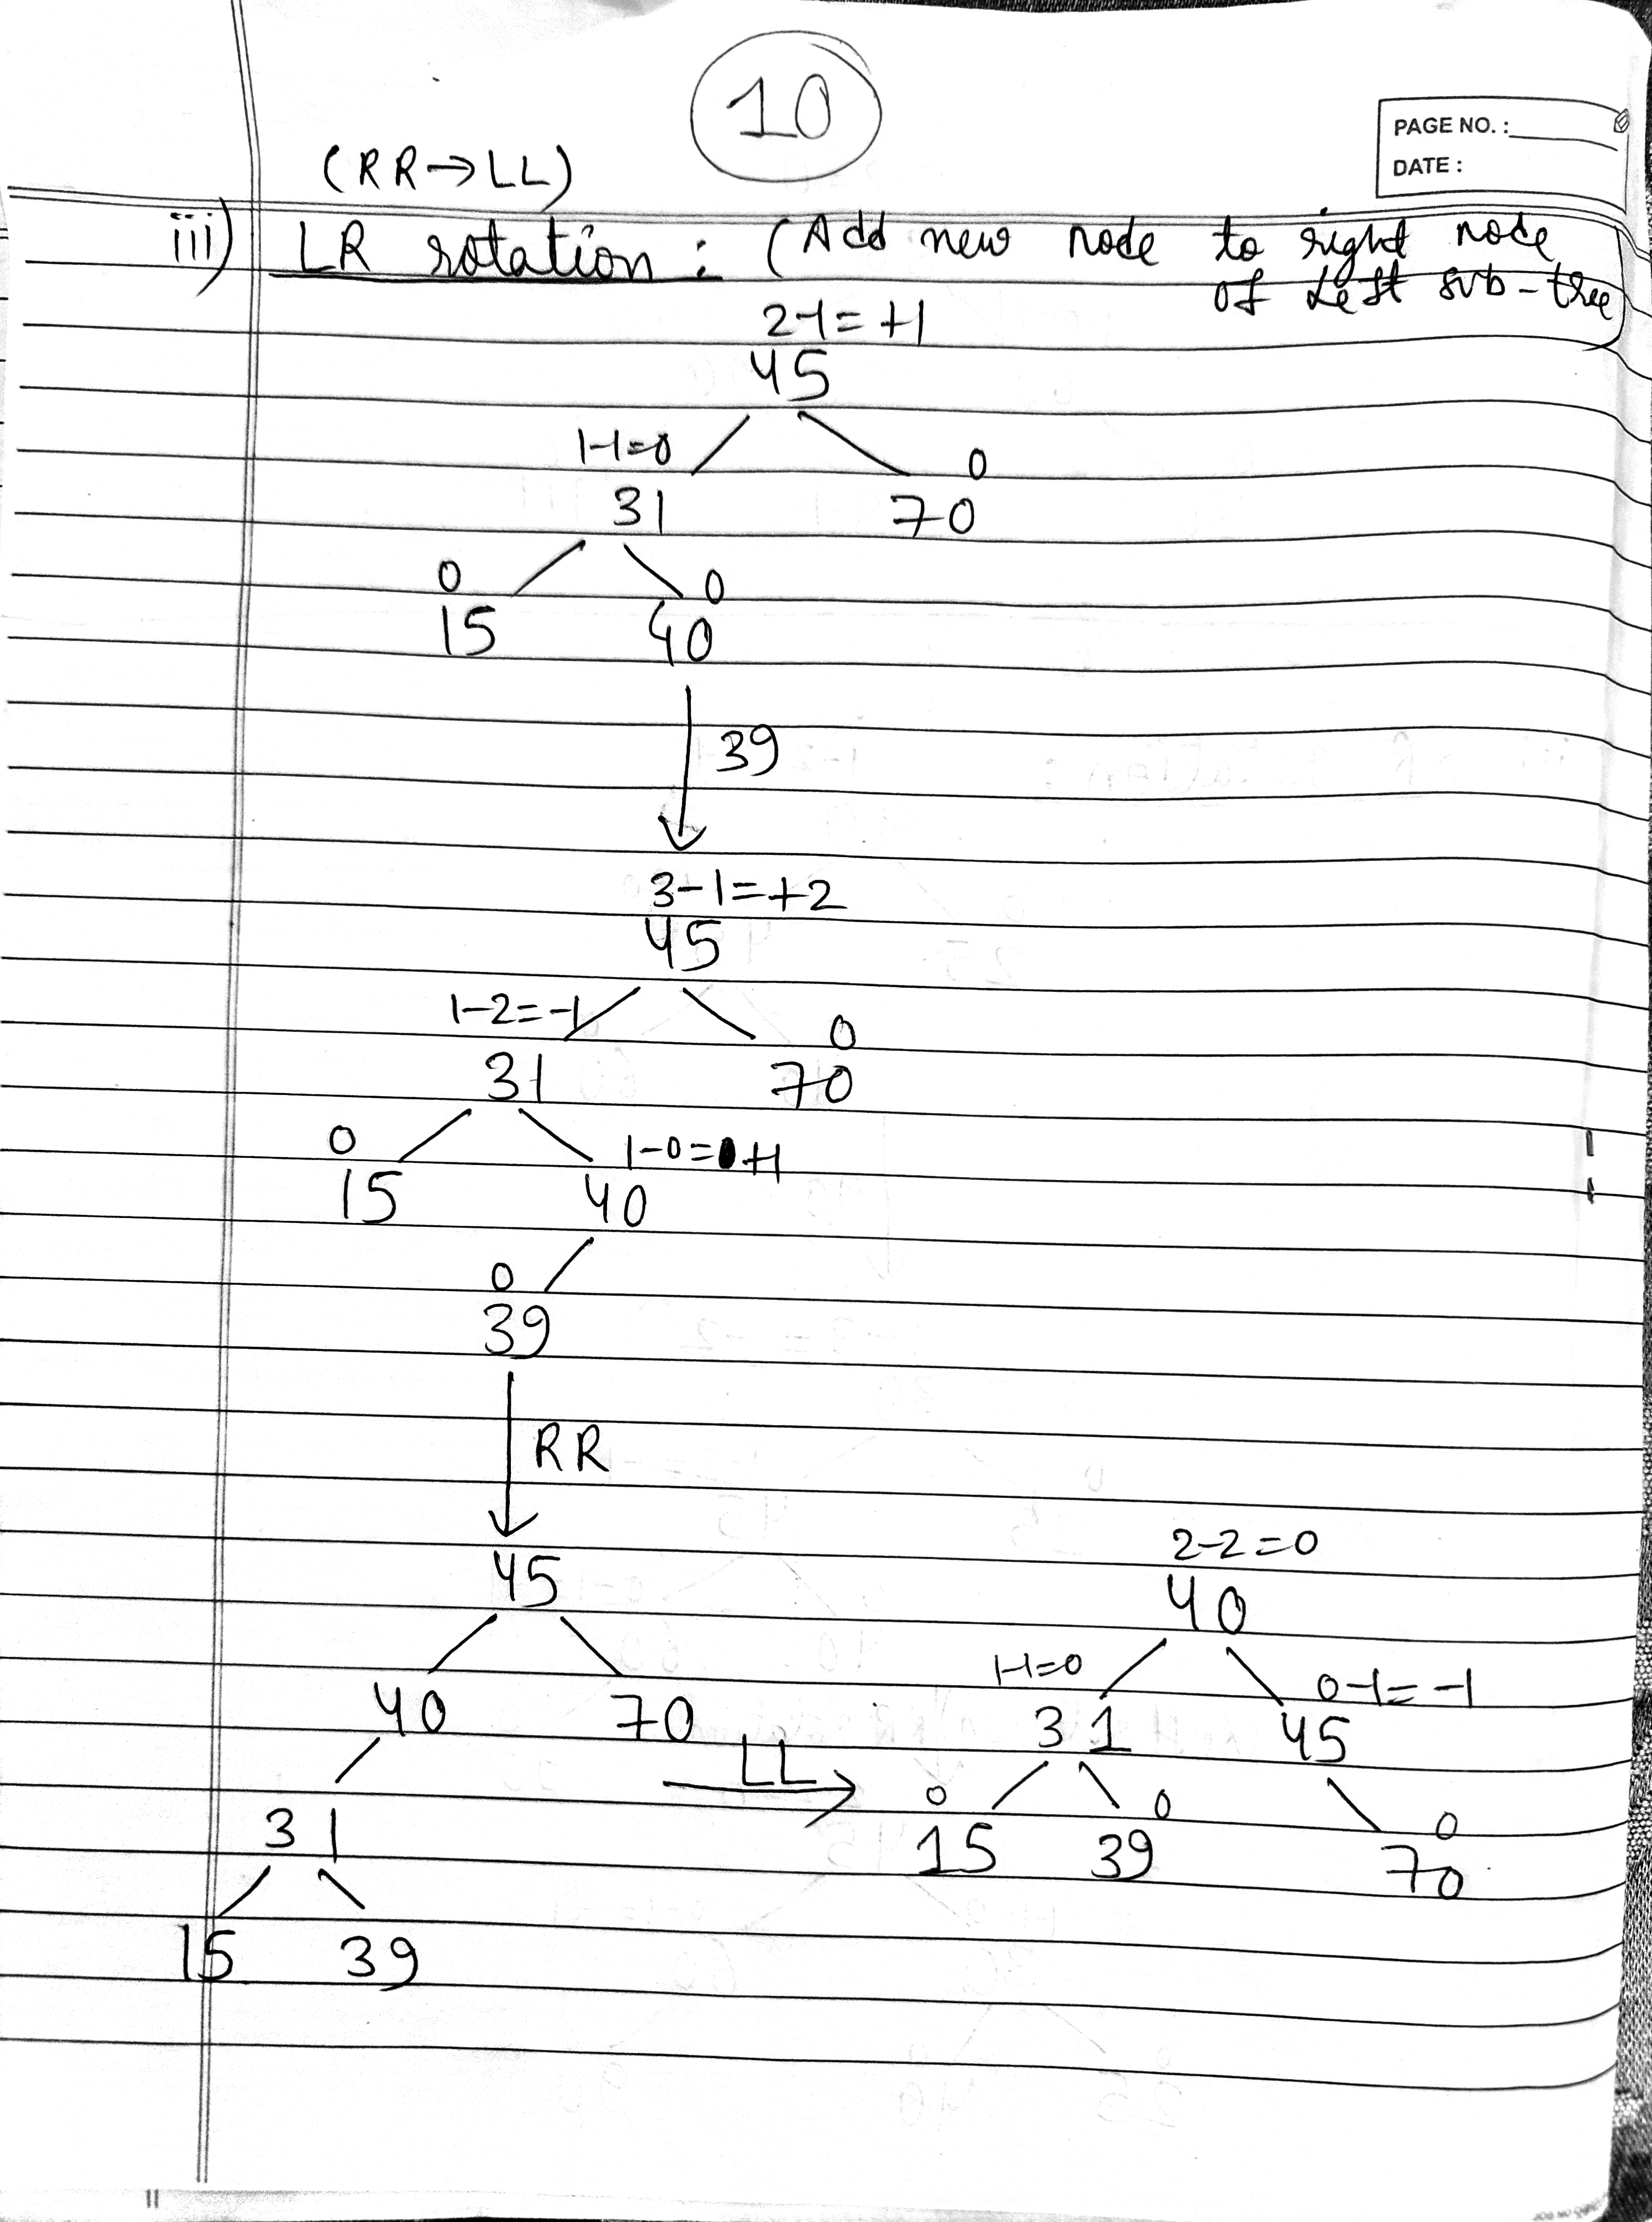 10
PAGE NO. :
DATE :
(RR→LL)
iii) LR rotation : (Add new node to right node
of Left sub-tree)
2-1= +1
45
1-1=0 0
31 70
0 0
15 40
39
3-1=+2
45
1-2=-1 0
31 70
0 1-0=+1
15 40
0
39
RR
45
40 70
31
15 39
LL
2-2=0
40
1-1=0 0-1= -1
31 45
0 0 0
15 39 70